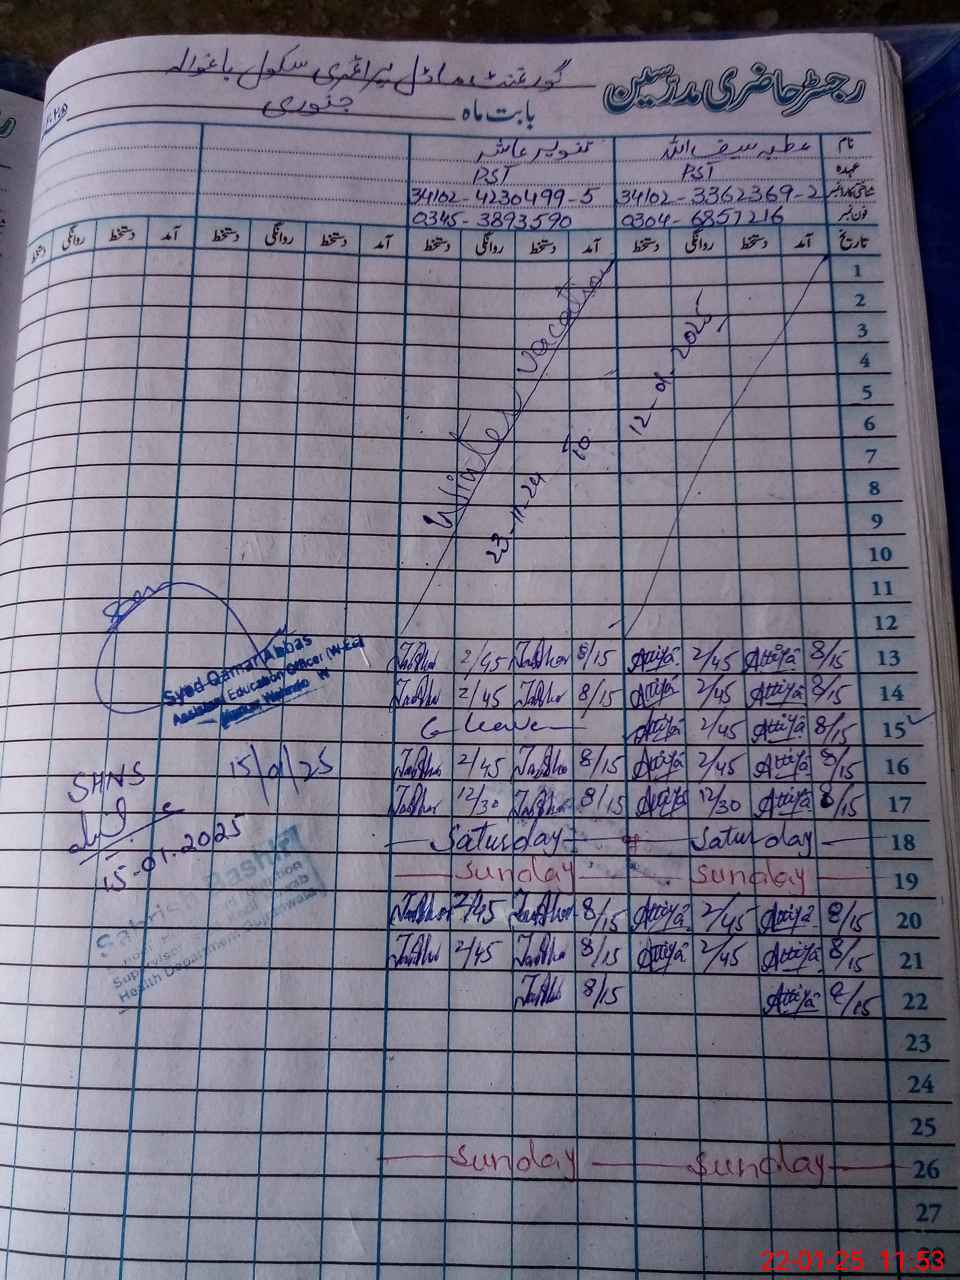 رجسٹر حاضری مدرسین
گورنمنٹ ماڈل پرائمری سکول باغوالہ
بابت ماہ جنوری
نام عطیہ سیف اللہ تنویر
عہدہ PST PST
34102-3362369-2 34102-4230499-5
فون نمبر 0304-6857216 0345-3893590
تاریخ آمد دستخط روانگی دستخط آمد دستخط روانگی دستخط آمد دستخط روانگی دستخط آمد دستخط روانگی دستخط
1
2
3
4
5
6
7
8
9
10
11
12
Winter vacation
23-11-24 to 12-01-2025
2/45 8/15 Attiya 2/45 Attiya 8/15 13
2/45 8/15 Attiya 2/45 Attiya 8/15 14
Leave Attiya 2/45 Attiya 8/15 15
2/45 8/15 Attiya 2/45 Attiya 8/15 16
12/30 8/15 Attiya 12/30 Attiya 8/15 17
Saturday Saturday 18
Sunday Sunday 19
2/45 8/15 Attiya 2/45 Attiya 8/15 20
2/45 8/15 Attiya 2/45 Attiya 8/15 21
8/15 Attiya 8/15 22
23
24
25
Sunday Sunday 26
27
Syed Qamar Abbas
Assistant Education Officer (W-EE)
15/01/25
SHNS
15-01-2025
Bashir
Supervisor
Health Department Gujranwala
22-01-25 11:53